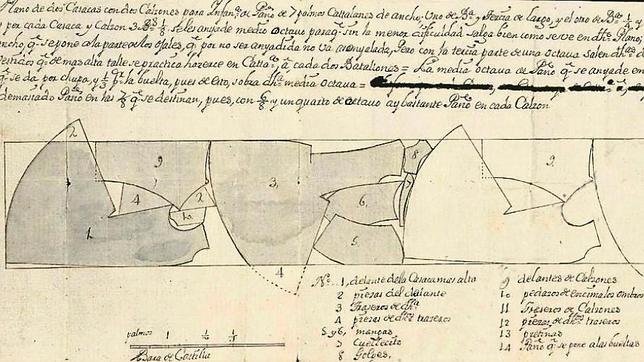 Plano de dos Casacas con dos Calzones para Infan.ª de Paño de 7 palmos Cattalanes de ancho, Uno de B.ª y tercia de largo, y el otro de B.ª
por cada Casaca y Calzon 3 B.ª se les anyade medio octavo para q.e sin la menor dificultad salga bien como se ve en d.tto Plano;
ancho, q.e se pone a la parte de los ojales, q.e por no ser anyadida no va anyalada, Pero con la tercia parte de una octava salen d.has
q.e de mas alta talle se practico hacerse en Catt.a cada dos Batallones = La media octava de Paño q.e se anyade en
q.e se da por chupa, y 1/3 p.r la buelta, pues de esto, sobra d.ha media octava =
demasiado Paño en las 7/8 q.e se destinan, pues, con 6/8 y un quarto de octavo ay bastante Paño en cada Calzon
2
9
4
2
10
1
3
4
8
7
6
5
2
9
3
Nos. 1, delante de la Casaca mas alta
2 piezas del delante
3 Traseros de d.ha
4 piezas de d.hos traseros
5 y 6, mangas
7 Cuellecito
8 Golpes
9 delantes de Calzones
10 pedazos de encima los ombros
11 Traseros de Calzones
12 piezas de d.hos traseros
13 pretinas
14 Paño q.e se pone a las bueltas
palmos 1
Bara de Castilla